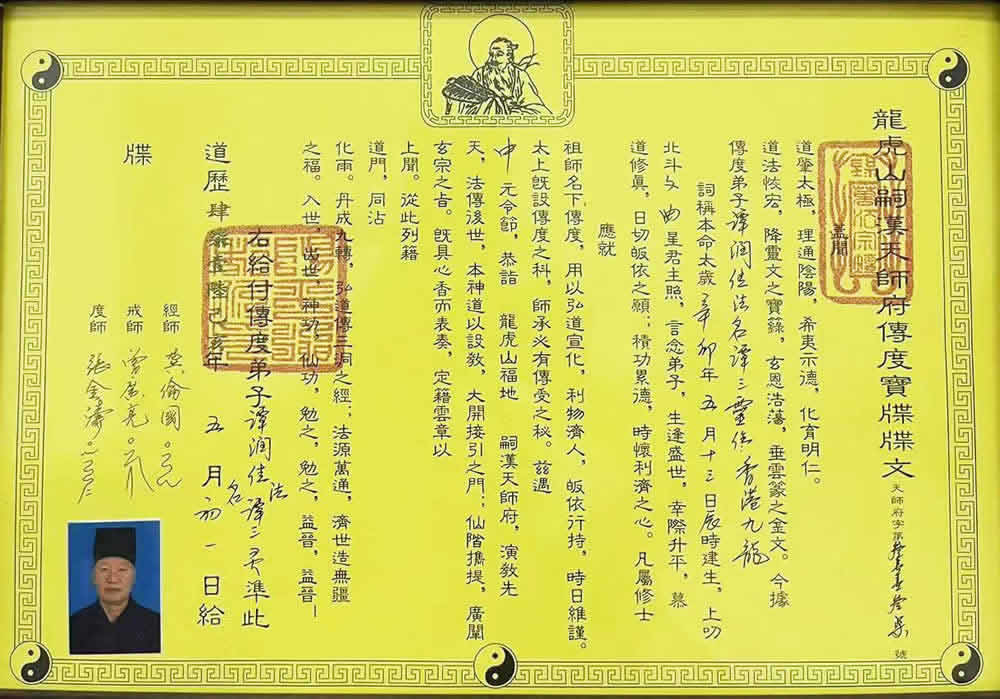 龍虎山嗣漢天師府傳度寶牒牒文 天師府字第 號
蓋聞
道肇太極，理通陰陽，希夷示德，化育明仁。
道法恢宏，降靈文之寶籙，玄恩浩蕩，垂雲篆之金文。今據
傳度弟子譚潤佳法名譚三靈住香港九龍
詞稱本命太歲辛卯年五月十三日辰時建生，上叩
北斗文曲星君主照，言念弟子，生逢盛世，幸際升平，慕
道修眞，日切皈依之願；積功累德，時懷利濟之心。凡屬修士
應就
祖師名下傳度，用以弘道宣化，利物濟人，皈依行持，時日維謹。
太上旣設傳度之科，師承必有傳受之秘。茲遇
中元令節，恭詣 龍虎山福地 嗣漢天師府，演教先
天，法傳後世，本神道以設教，大開接引之門；仙階攜提，廣闡
玄宗之旨。旣具心香而表奏，定籍雲章以
上聞。從此列籍
道門，同沾
化雨。丹成九轉，弘道傳三洞之經；法源萬通，濟世造無疆
之福。入世，出世，神功，仙功，勉之，勉之，益晉，益晉！
右給付傳度弟子譚潤佳法名譚三灵準此
道歷肆 己亥年 五月初一日給
牒
經師 黃倫國
戒師 曾廣亮
度師 張金濤